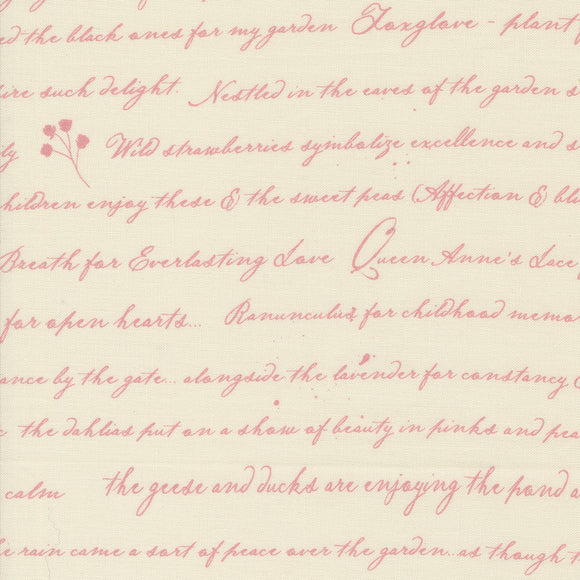 ed the black ones for my garden Foxglove - plant
ire such delight. Nestled in the eaves of the garden s
ily Wild strawberries symbolize excellence and s
children enjoy these & the sweet peas (Affection & bli
Breath for Everlasting Love Queen Anne's Lace
for open hearts... Ranunculus for childhood memo
ance by the gate... alongside the lavender for constancy
the dahlias put on a show of beauty in pinks and pea
calm the geese and ducks are enjoying the pond a
e rain came a sort of peace over the garden...as though t